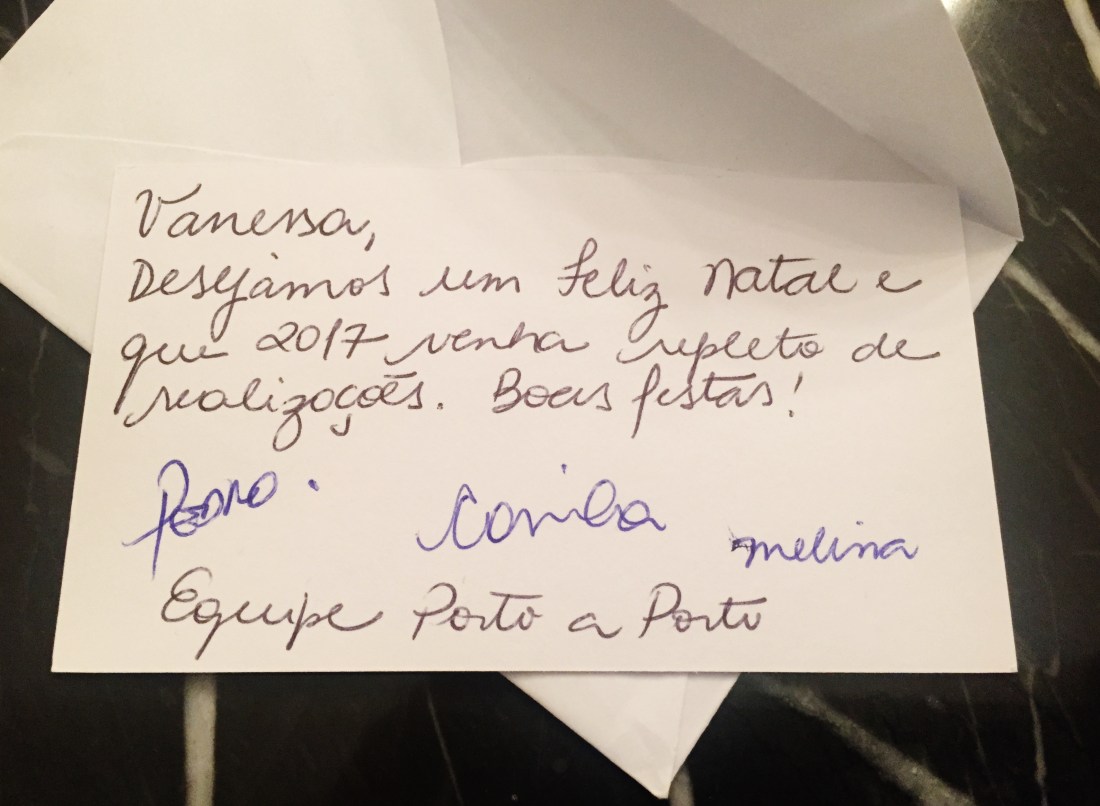 Vanessa,
Desejamos um Feliz Natal e
que 2017 venha repleto de
realizações. Boas festas!
Pedro. Camila melina
Equipe Porto a Porto